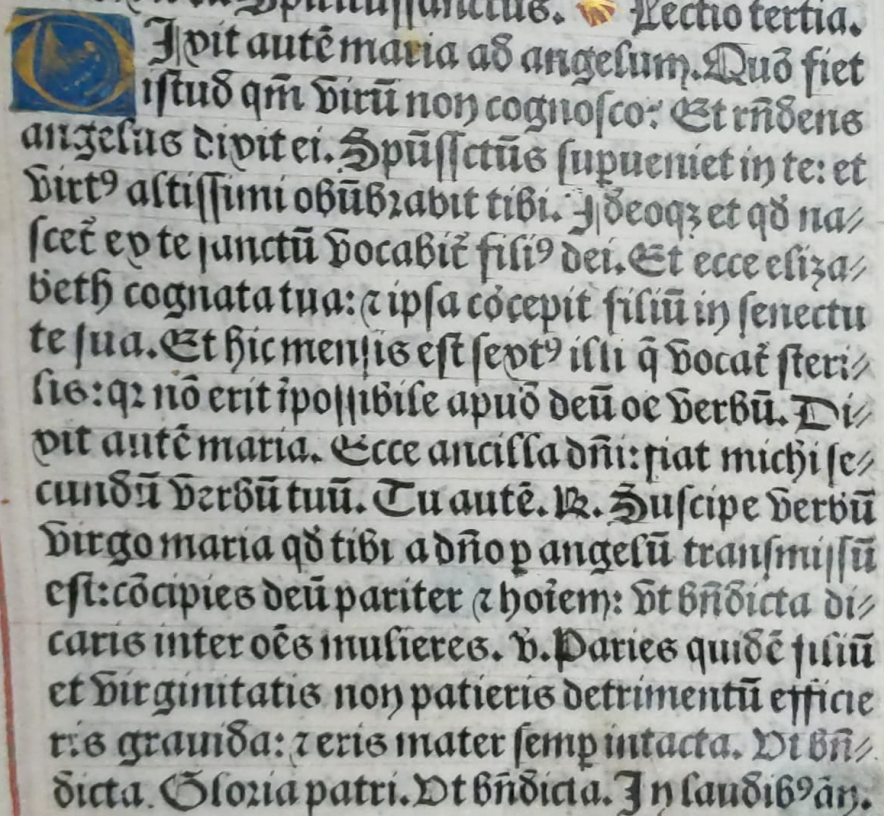 Spūssanctus. Lectio tertia.
DIxit autē maria ad angelum. Quō fiet
istud qm̄ virū non cognosco: Et rn̄dens
angelus dixit ei. Spūssctūs supueniet in te: et
virtꝰ altissimi obūbrabit tibi. Ideoqꝫ et qđ na⸗
scet̄ ex te sanctū vocabit̄ filiꝰ dei. Et ecce eliza⸗
beth cognata tua: ⁊ ipsa cōcepit filiū in senectu
te sua. Et hic mensis est sextꝰ illi q̄ vocat̄ steri⸗
lis: qꝛ nō erit īpossibile apud deū oe verbū. Di⸗
xit autē maria. Ecce ancilla dn̄i: fiat michi se⸗
cundū verbū tuū. Tu autē. ℟. Suscipe verbū
virgo maria qđ tibi a dn̄o ꝑ angelū transmissū
est: cōcipies deū pariter ⁊ hoīem: vt bn̄dicta di⸗
caris inter oēs mulieres. v. Paries quidē filiū
et virginitatis non patieris detrimentū efficie
ris grauida: ⁊ eris mater semꝑ intacta. Vt bn̄⸗
dicta. Gloria patri. Vt bn̄dicta. In laudibꝰ ān.